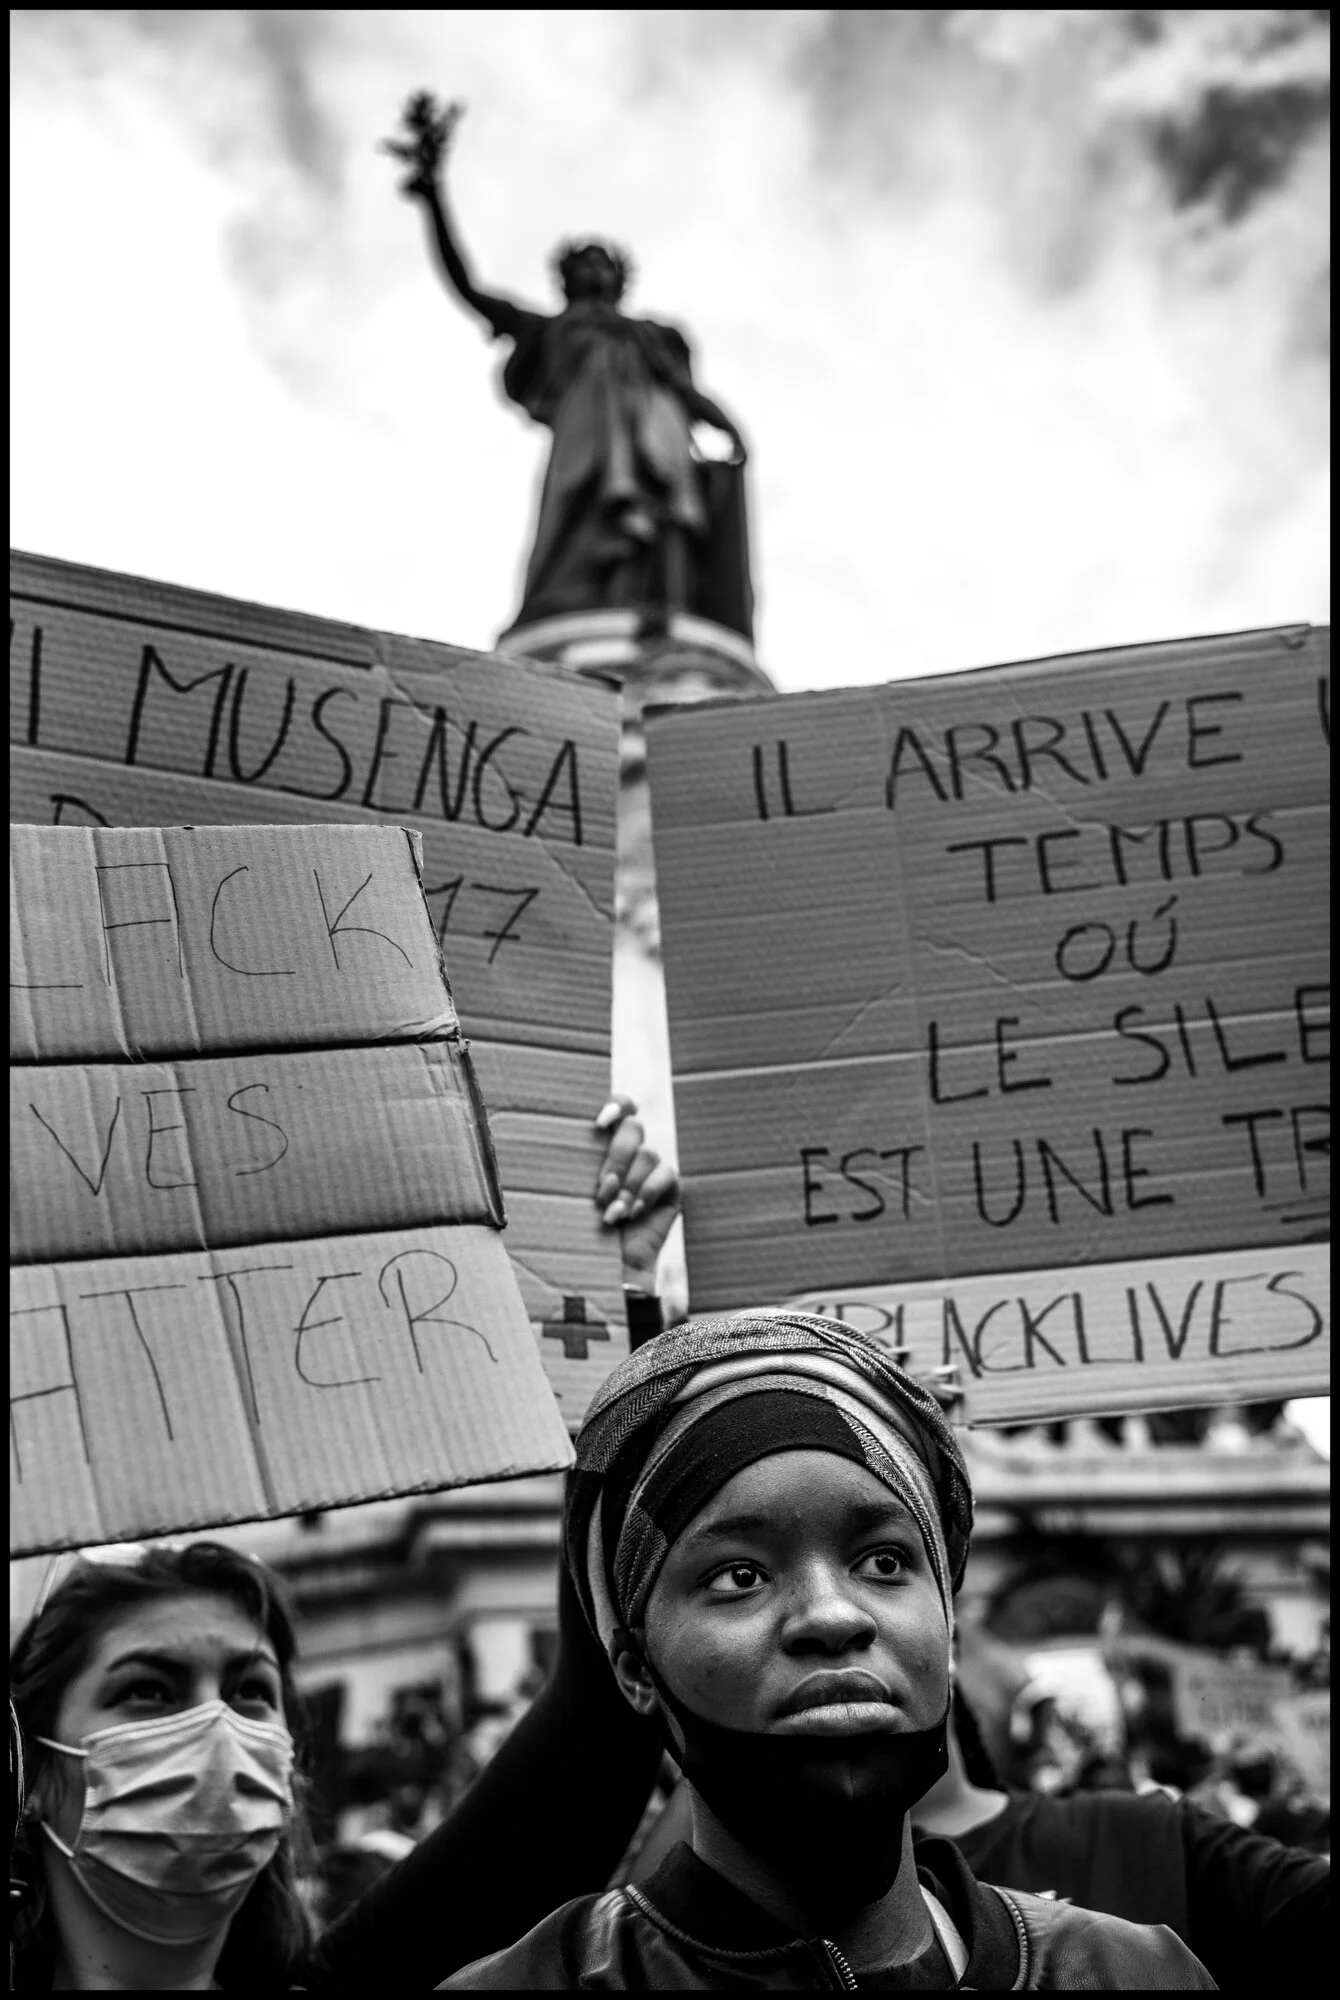 MUSENGA
17
LACK
VES
ATTER
IL ARRIVE
TEMPS
OÚ
LE SILE
EST UNE TR
BLACKLIVES